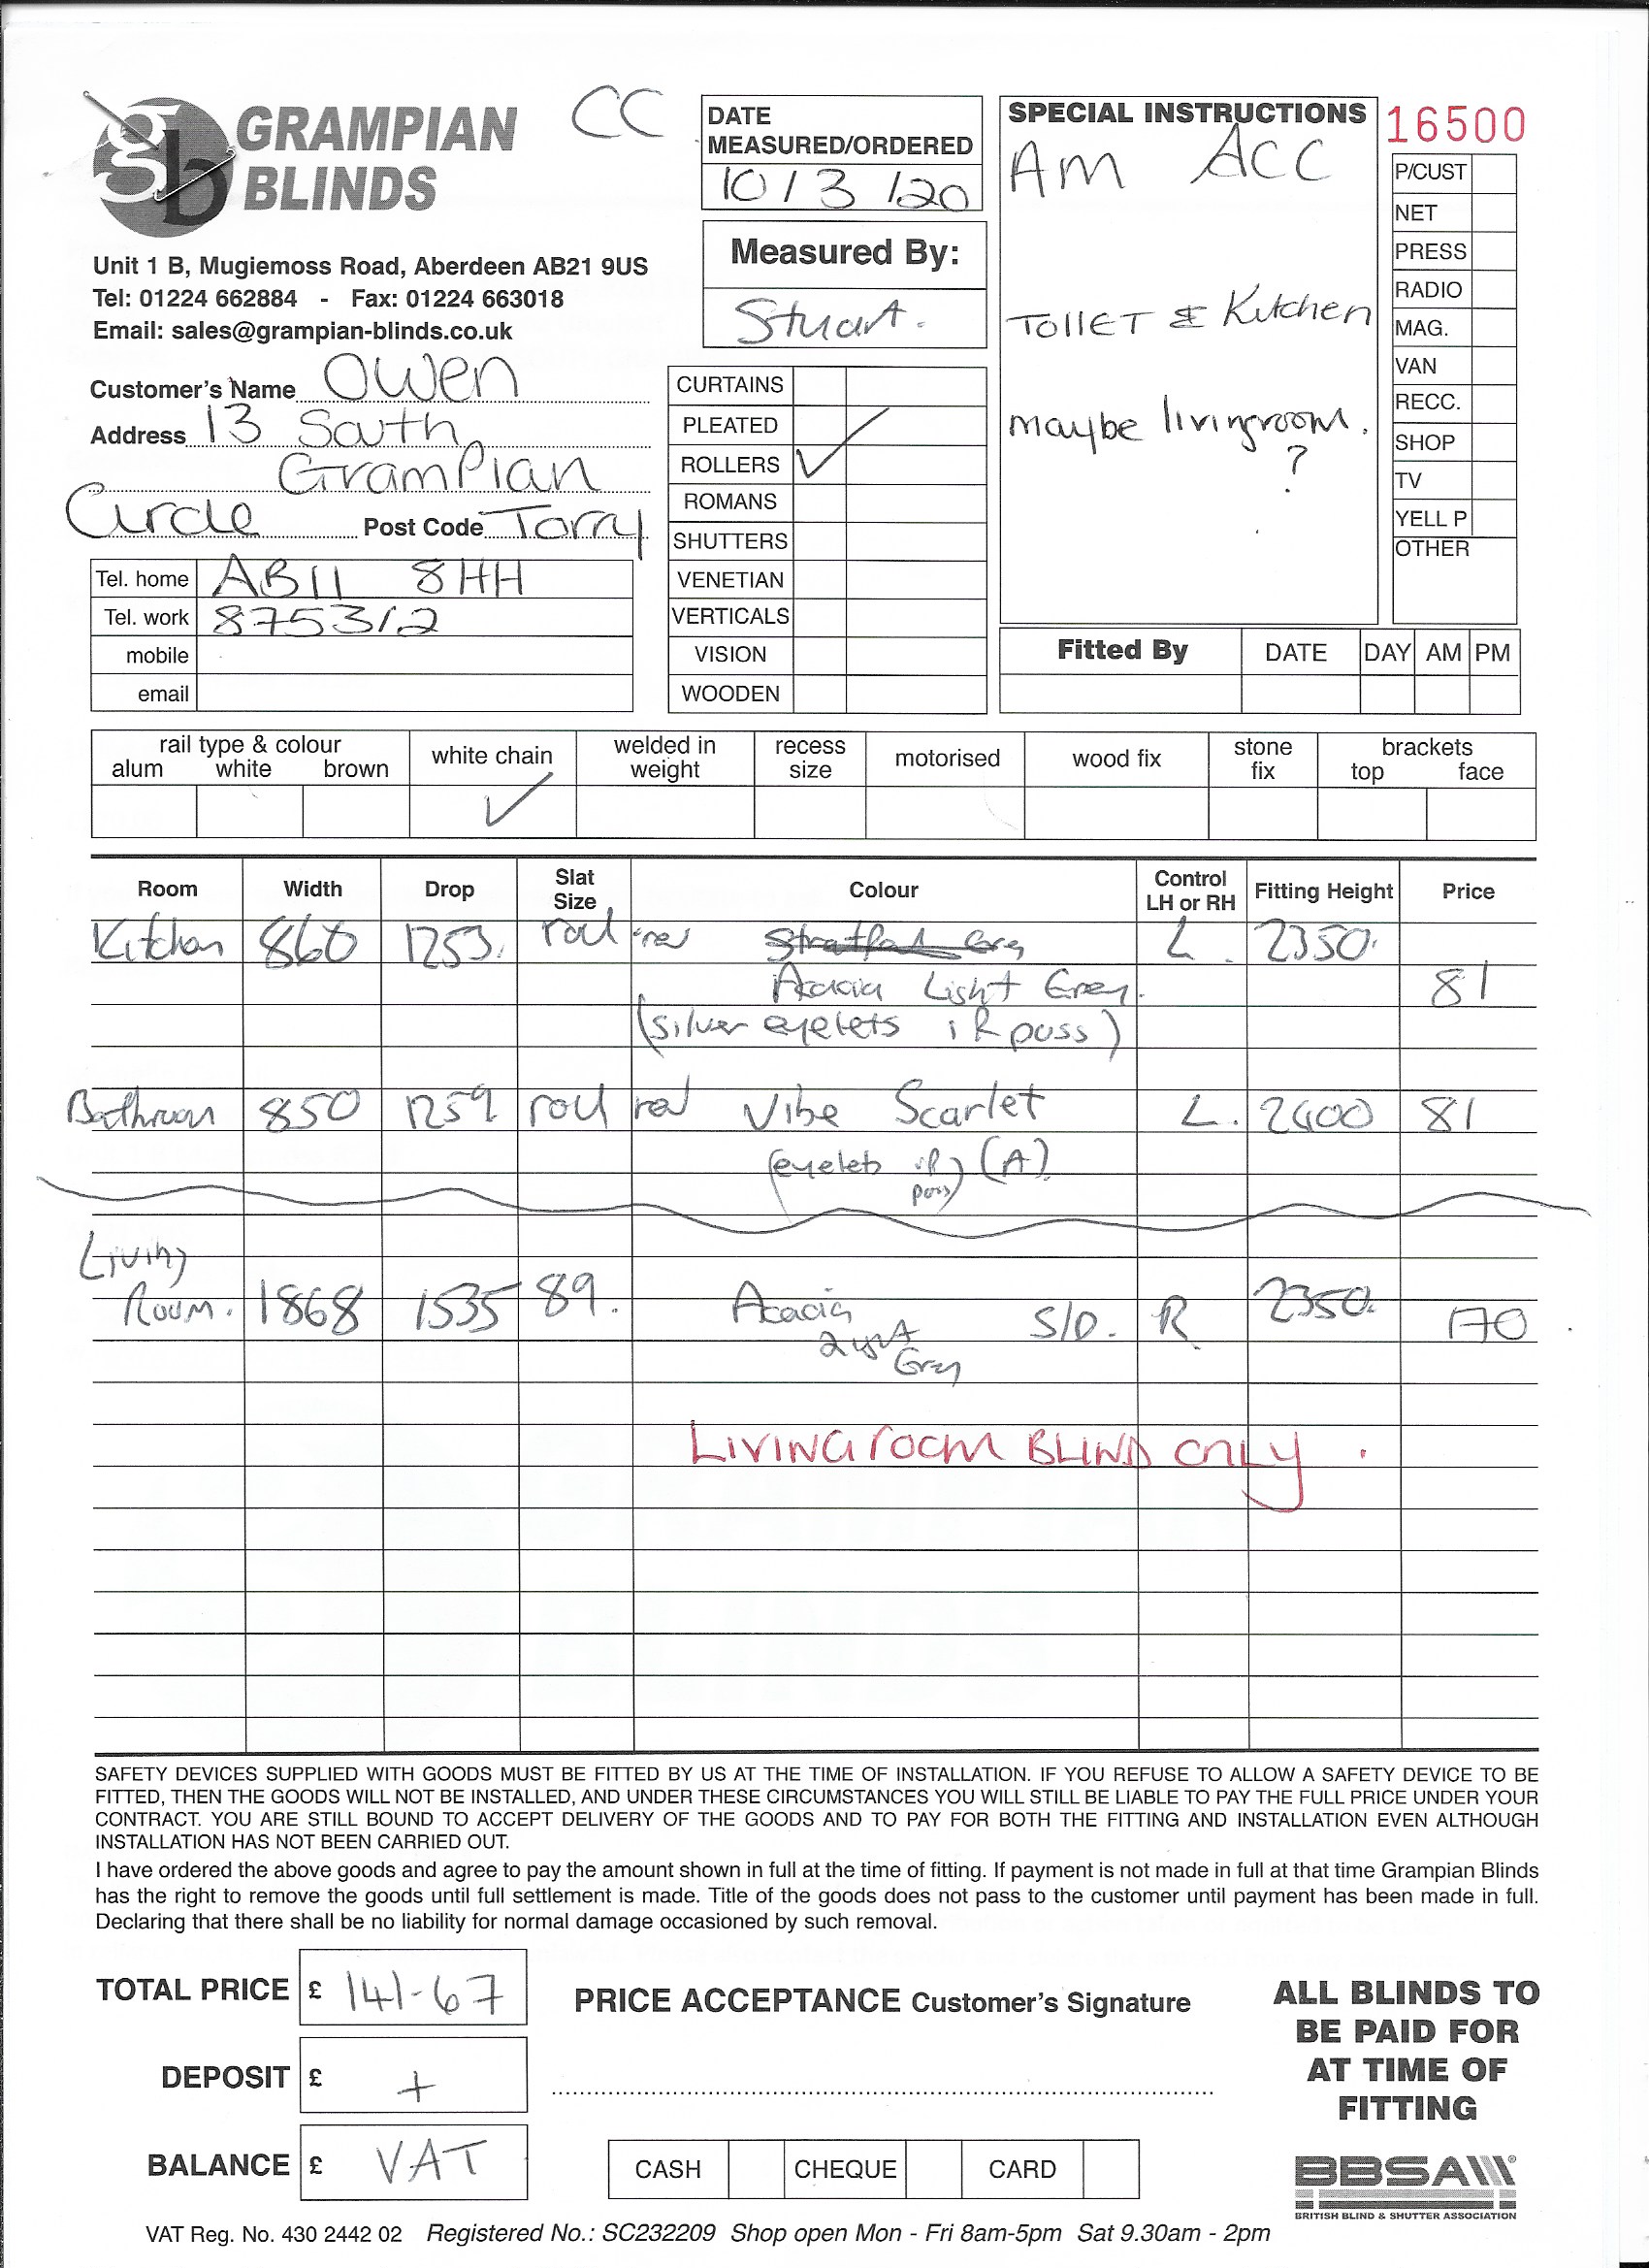 GRAMPIAN
BLINDS
CC
Unit 1 B, Mugiemoss Road, Aberdeen AB21 9US
Tel: 01224 662884 - Fax: 01224 663018
Email: sales@grampian-blinds.co.uk
Customer's Name Owen
Address 13 South
Grampian
Circle Post Code Torry
Tel. home AB11 8HH
Tel. work 875312
mobile
email
DATE
MEASURED/ORDERED
10/3/20
Measured By:
Stuart.
CURTAINS
PLEATED
ROLLERS ✓
ROMANS
SHUTTERS
VENETIAN
VERTICALS
VISION
WOODEN
SPECIAL INSTRUCTIONS
AM ACC
TOILET & Kitchen
maybe livingroom.
?
16500
P/CUST
NET
PRESS
RADIO
MAG.
VAN
RECC.
SHOP
TV
YELL P
OTHER
Fitted By DATE DAY AM PM
rail type & colour white chain welded in weight recess size motorised wood fix stone fix brackets
alum white brown top face
✓
Room Width Drop Slat Size Colour Control LH or RH Fitting Height Price
Kitchen 860 1253. Stratford Grey L. 2350.
Acacia Light Grey. 81
(silver eyelets if poss)
Bathroom 850 1259 Vibe Scarlet L. 2400 81
(eyelets if poss) (A)
Living
Room. 1868 1535 89. Acacia S/D. R 2350. 170
Light
Grey
LIVINGroom BLIND ONLY.
SAFETY DEVICES SUPPLIED WITH GOODS MUST BE FITTED BY US AT THE TIME OF INSTALLATION. IF YOU REFUSE TO ALLOW A SAFETY DEVICE TO BE
FITTED, THEN THE GOODS WILL NOT BE INSTALLED, AND UNDER THESE CIRCUMSTANCES YOU WILL STILL BE LIABLE TO PAY THE FULL PRICE UNDER YOUR
CONTRACT. YOU ARE STILL BOUND TO ACCEPT DELIVERY OF THE GOODS AND TO PAY FOR BOTH THE FITTING AND INSTALLATION EVEN ALTHOUGH
INSTALLATION HAS NOT BEEN CARRIED OUT.
I have ordered the above goods and agree to pay the amount shown in full at the time of fitting. If payment is not made in full at that time Grampian Blinds
has the right to remove the goods until full settlement is made. Title of the goods does not pass to the customer until payment has been made in full.
Declaring that there shall be no liability for normal damage occasioned by such removal.
TOTAL PRICE £ 141-67
DEPOSIT £ +
BALANCE £ VAT
PRICE ACCEPTANCE Customer's Signature
CASH CHEQUE CARD
ALL BLINDS TO
BE PAID FOR
AT TIME OF
FITTING
BBSA
BRITISH BLIND & SHUTTER ASSOCIATION
VAT Reg. No. 430 2442 02 Registered No.: SC232209 Shop open Mon - Fri 8am-5pm Sat 9.30am - 2pm